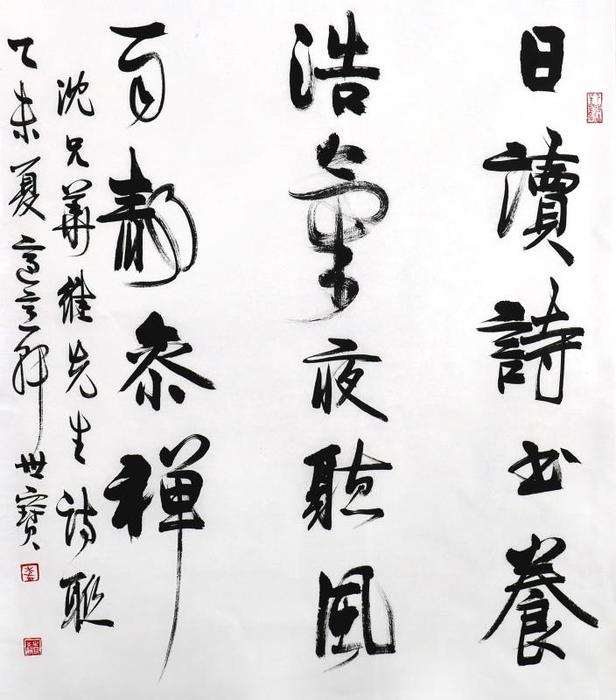 日讀詩书養
浩氣夜聽風
雨靜叅禪
沈兄華維先生詩聯
乙未夏世寶